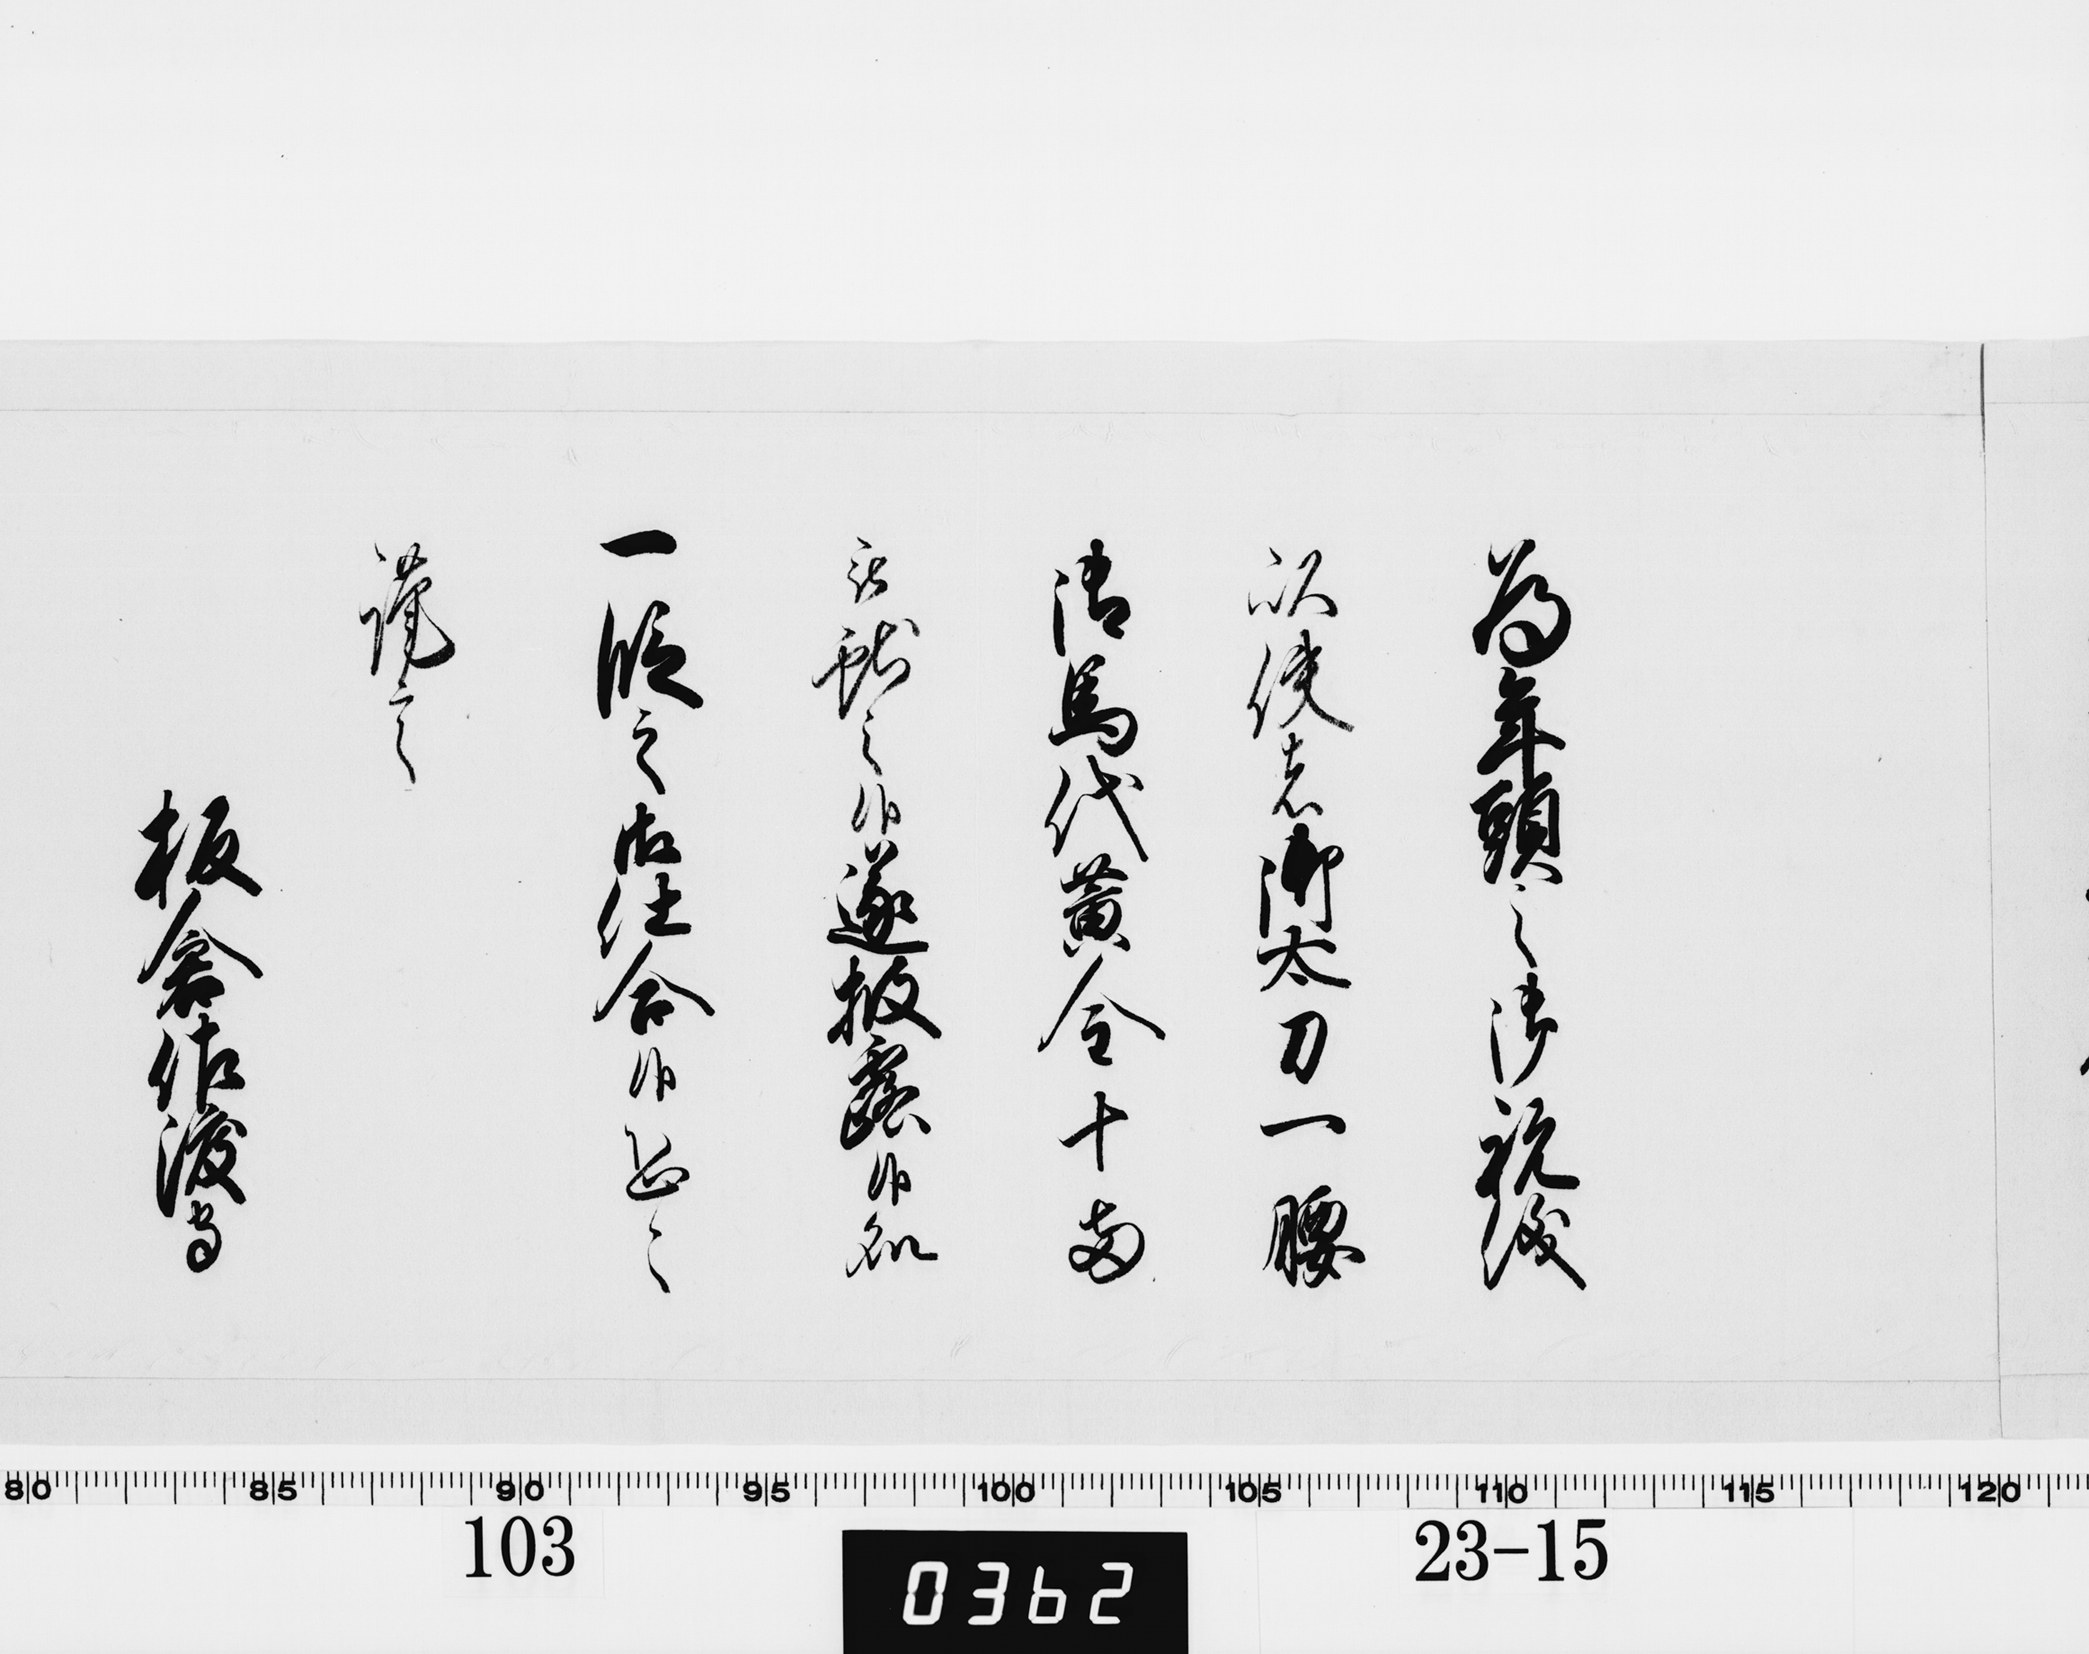 為年頭之御祝儀
以使者御太刀一腰
御馬代黄金十両
被献之候遂披露候処
一段之御仕合候恐々
謹言
板倉佐渡守
80 85 90 95 100 105 110 115 120
103 0362 23-15